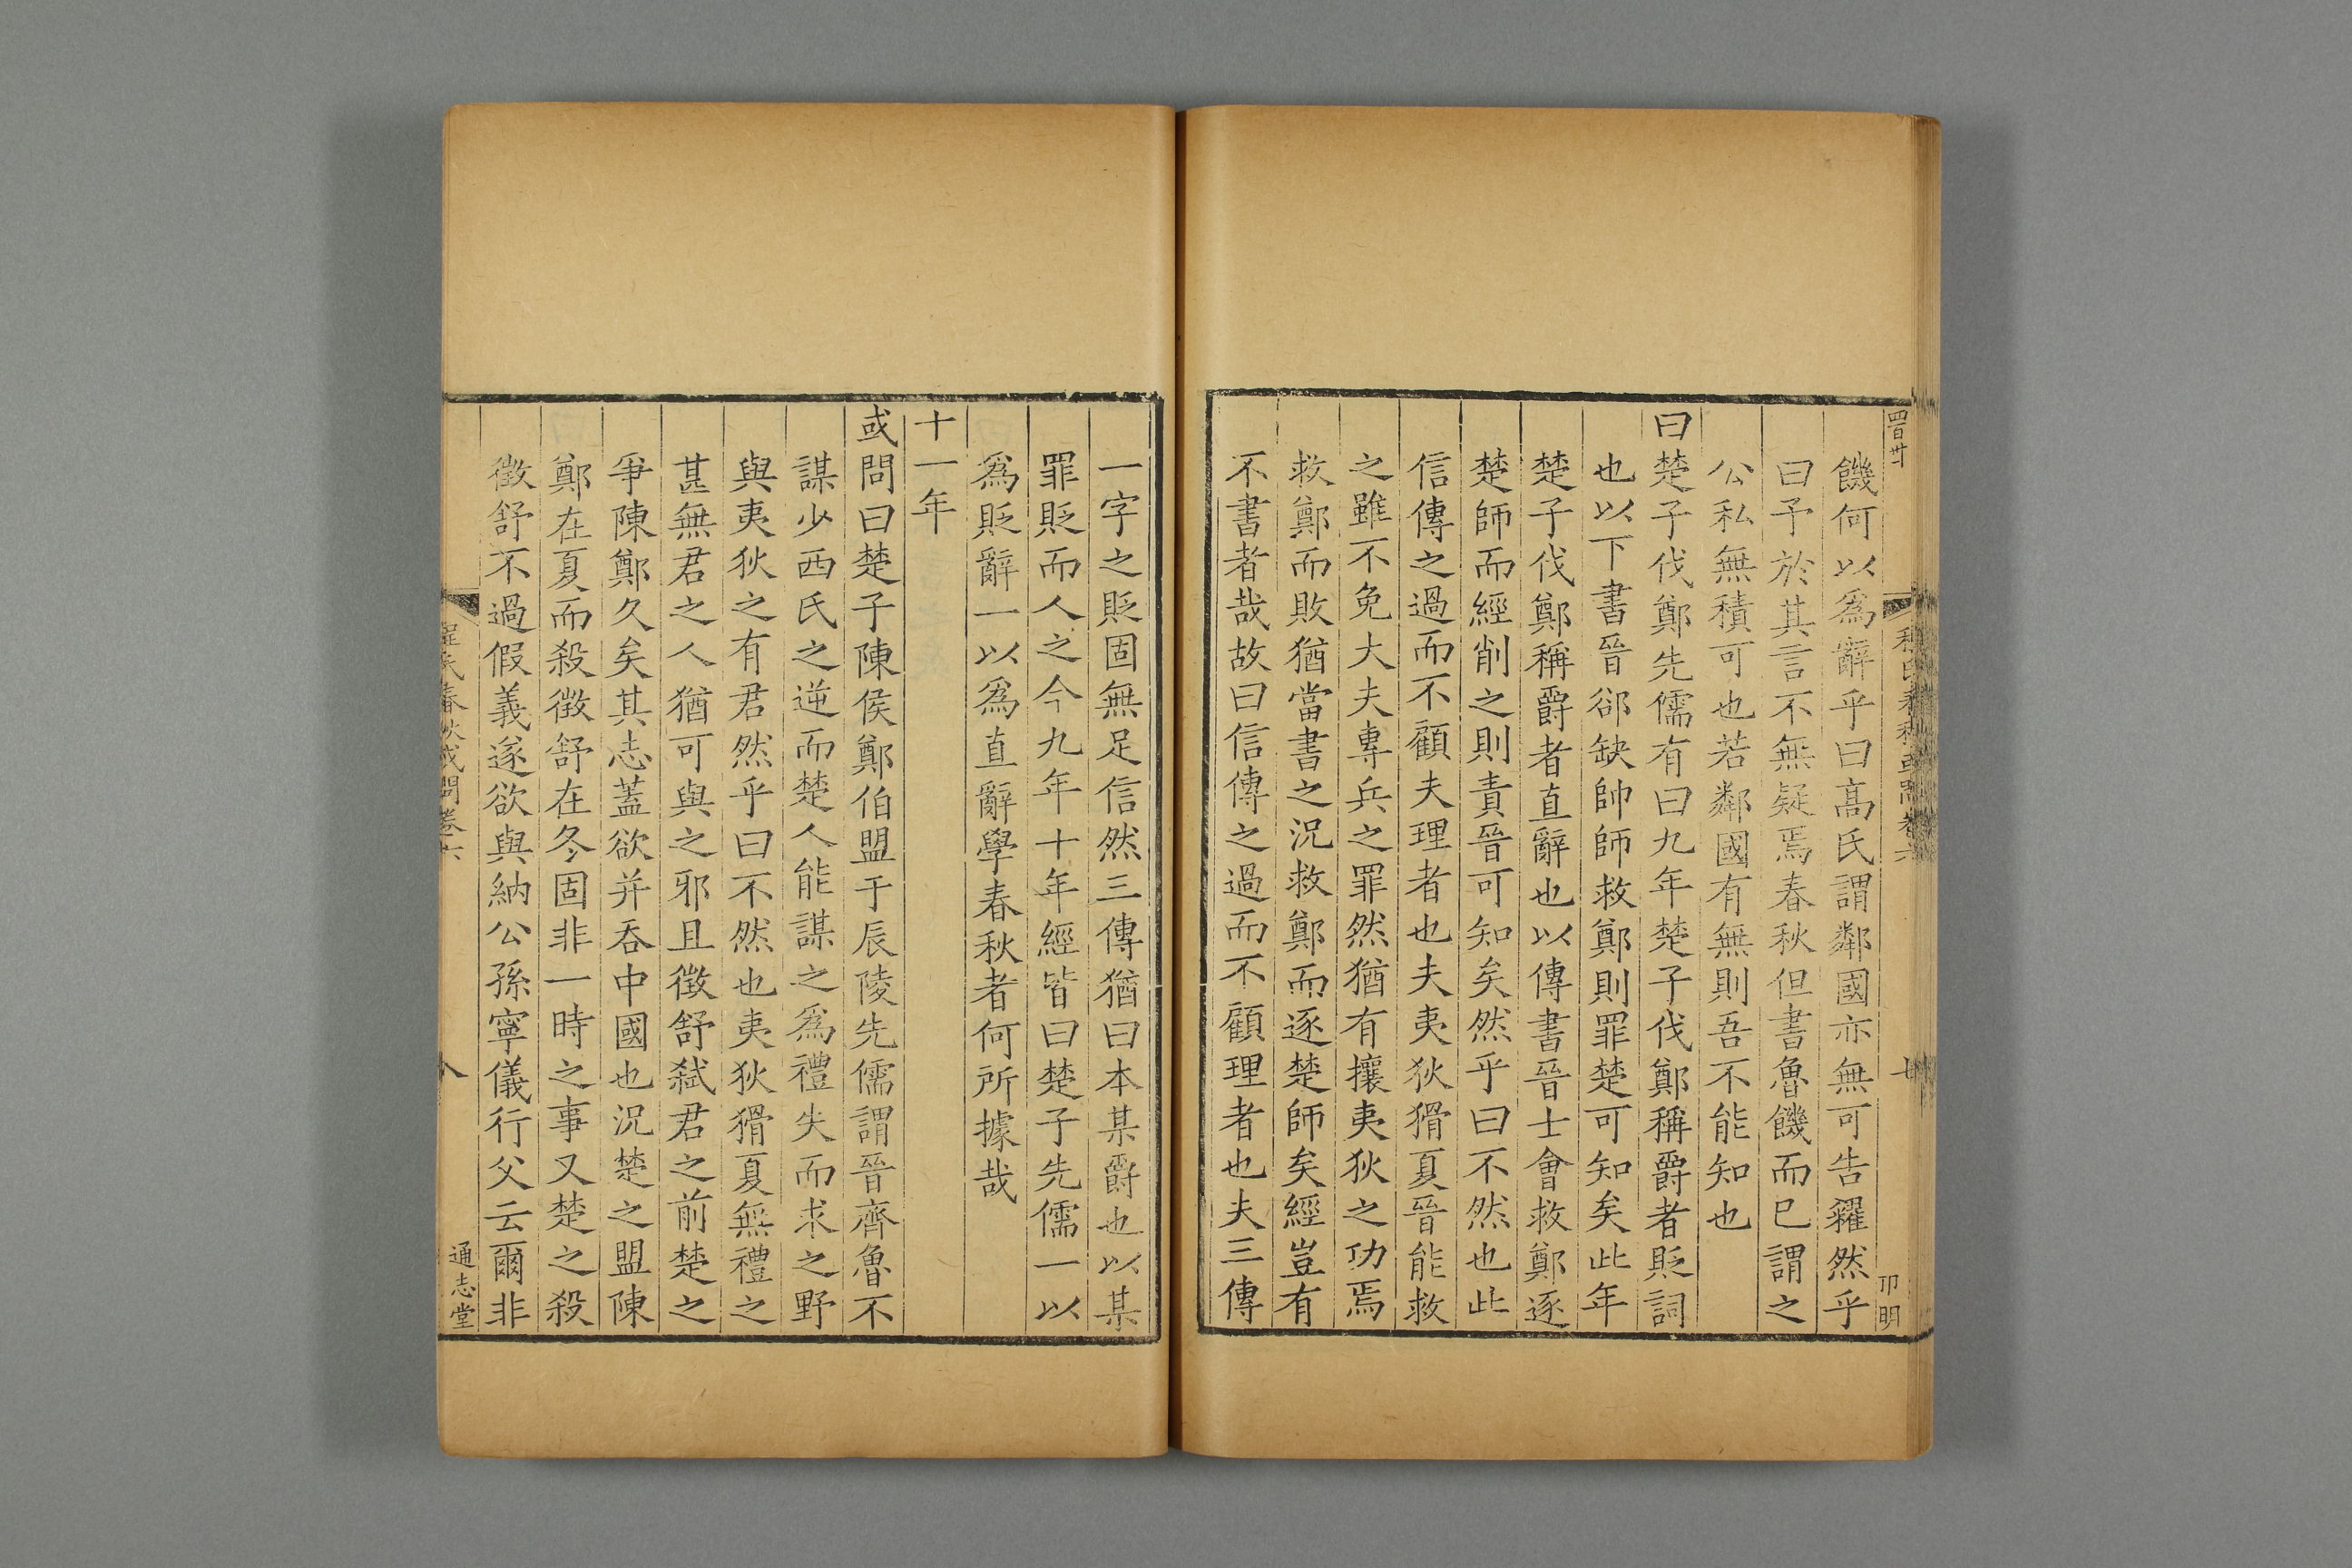 饑何以爲辭乎曰高氏謂鄰國亦無可告糴然乎
曰予於其言不無疑焉春秋但書魯饑而已謂之
公私無積可也若鄰國有無則吾不能知也
曰楚子伐鄭先儒有曰九年楚子伐鄭稱爵者貶詞
也以下書晉郤缺帥師救鄭則罪楚可知矣此年
楚子伐鄭稱爵者直辭也以傳書晉士會救鄭逐
楚師而經削之則責晉可知矣然乎曰不然也此
信傳之過而不顧夫理者也夫夷狄猾夏晉能救
之雖不免大夫專兵之罪然猶有攘夷狄之功焉
救鄭而敗猶當書之況救鄭而逐楚師矣經豈有
不書者哉故曰信傳之過而不顧理者也夫三傳
一字之貶固無足信然三傳猶曰本某爵也以某
罪貶而人之今九年十年經皆曰楚子先儒一以
爲貶辭一以爲直辭學春秋者何所據哉
十一年
或問曰楚子陳侯鄭伯盟于辰陵先儒謂晉齊魯不
謀少西氏之逆而楚人能謀之爲禮失而求之野
與夷狄之有君然乎曰不然也夷狄猾夏無禮之
甚無君之人猶可與之邪且徵舒弑君之前楚之
爭陳鄭久矣其志蓋欲并吞中國也況楚之盟陳
鄭在夏而殺徵舒在冬固非一時之事又楚之殺
徵舒不過假義遂欲與納公孫寧儀行父云爾非
程氏春秋或問卷六
八
通志堂